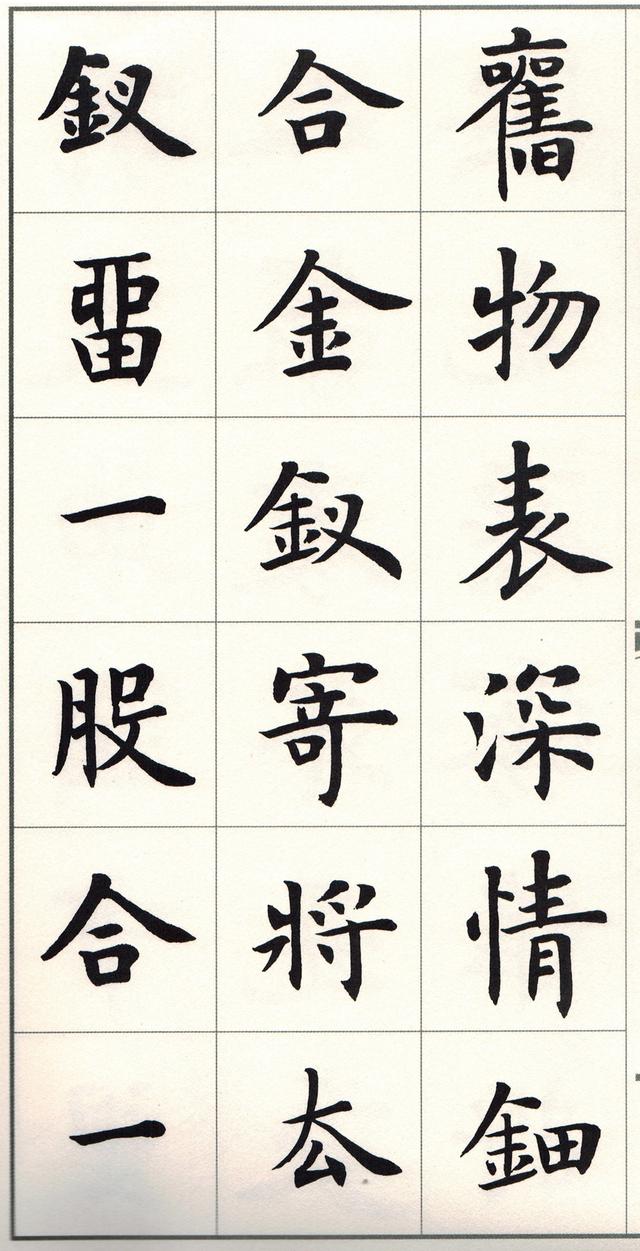 舊物表深情鈿
合金釵寄將厺
釵畱一股合一